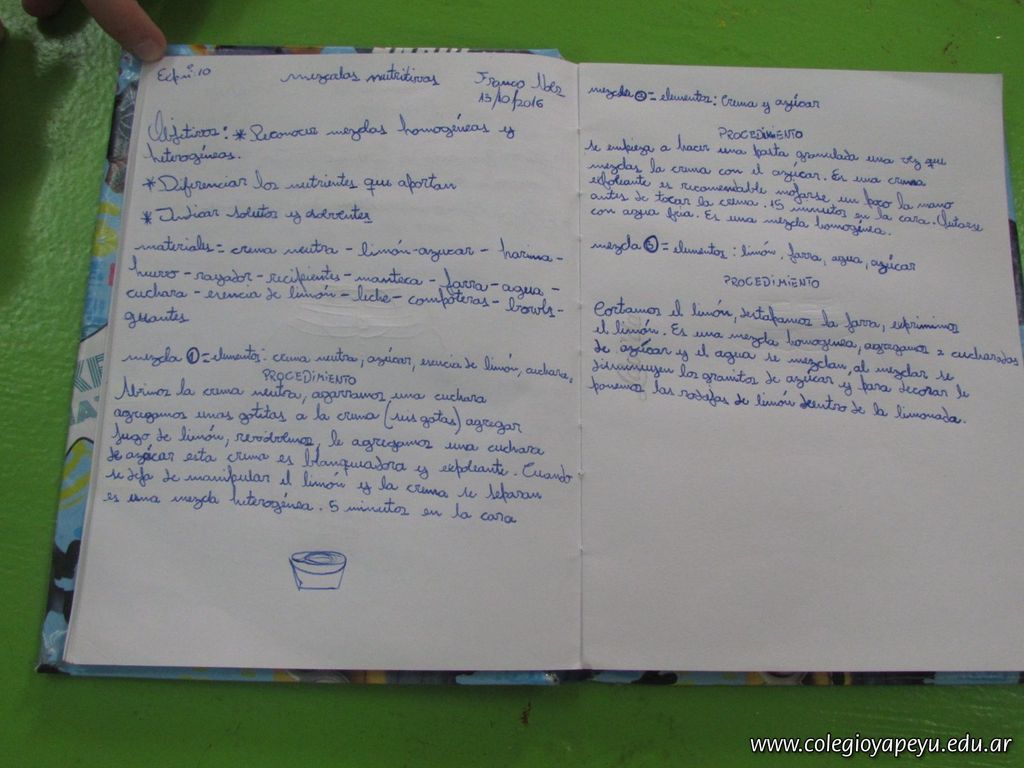 mezcalas nutritivas
Franco
13/10/2016
Objetivos: * Reconocer mezclas homogéneas y
heterogéneas.
* Diferenciar los nutrientes que aportan
* Indicar solutos y solventes
materiales = crema neutra - limón - azucar - harina -
huevo - rayador - recipientes - manteca - jarra - agua -
cuchara - esencia de limón - leche - compoteras - bowls -
guantes
mezcla ① = elementos - crema neutra, azúcar, esencia de limón, cuchara,
PROCEDIMIENTO
Abrimos la crema neutra, agarramos una cuchara
agregamos unas gotitas a la crema (seis gotas) agregar
jugo de limón, revolvemos, le agregamos una cuchara
de azúcar esta crema es blanqueadora y exfoleante. Cuando
se deja de manipular el limón y la crema se separan
es una mezcla heterogénea. 5 minutos en la cara
mezcla ② = elementos: Crema y azúcar
PROCEDIMIENTO
se empieza a hacer una pasta granulada una vez que
mezclas la crema con el azúcar. Es una crema
exfoleante es recomendable mojarse un poco la mano
antes de tocar la crema. 15 minutos en la cara.
con agua fria. Es una mezcla homogénea.
mezcla ③ = elementos: limón, jarra, agua, azúcar
PROCEDIMIENTO
Cortamos el limón, destapamos la jarra, exprimimos
el limón. Es una mezcla homogenea, agregamos 2 cucharadas
de azúcar y el agua se mezclan, al mezclar se
disminuyen los granitos de azúcar y para decorar le
ponemos las rodajas de limón dentro de la limonada.
www.colegioyapeyu.edu.ar